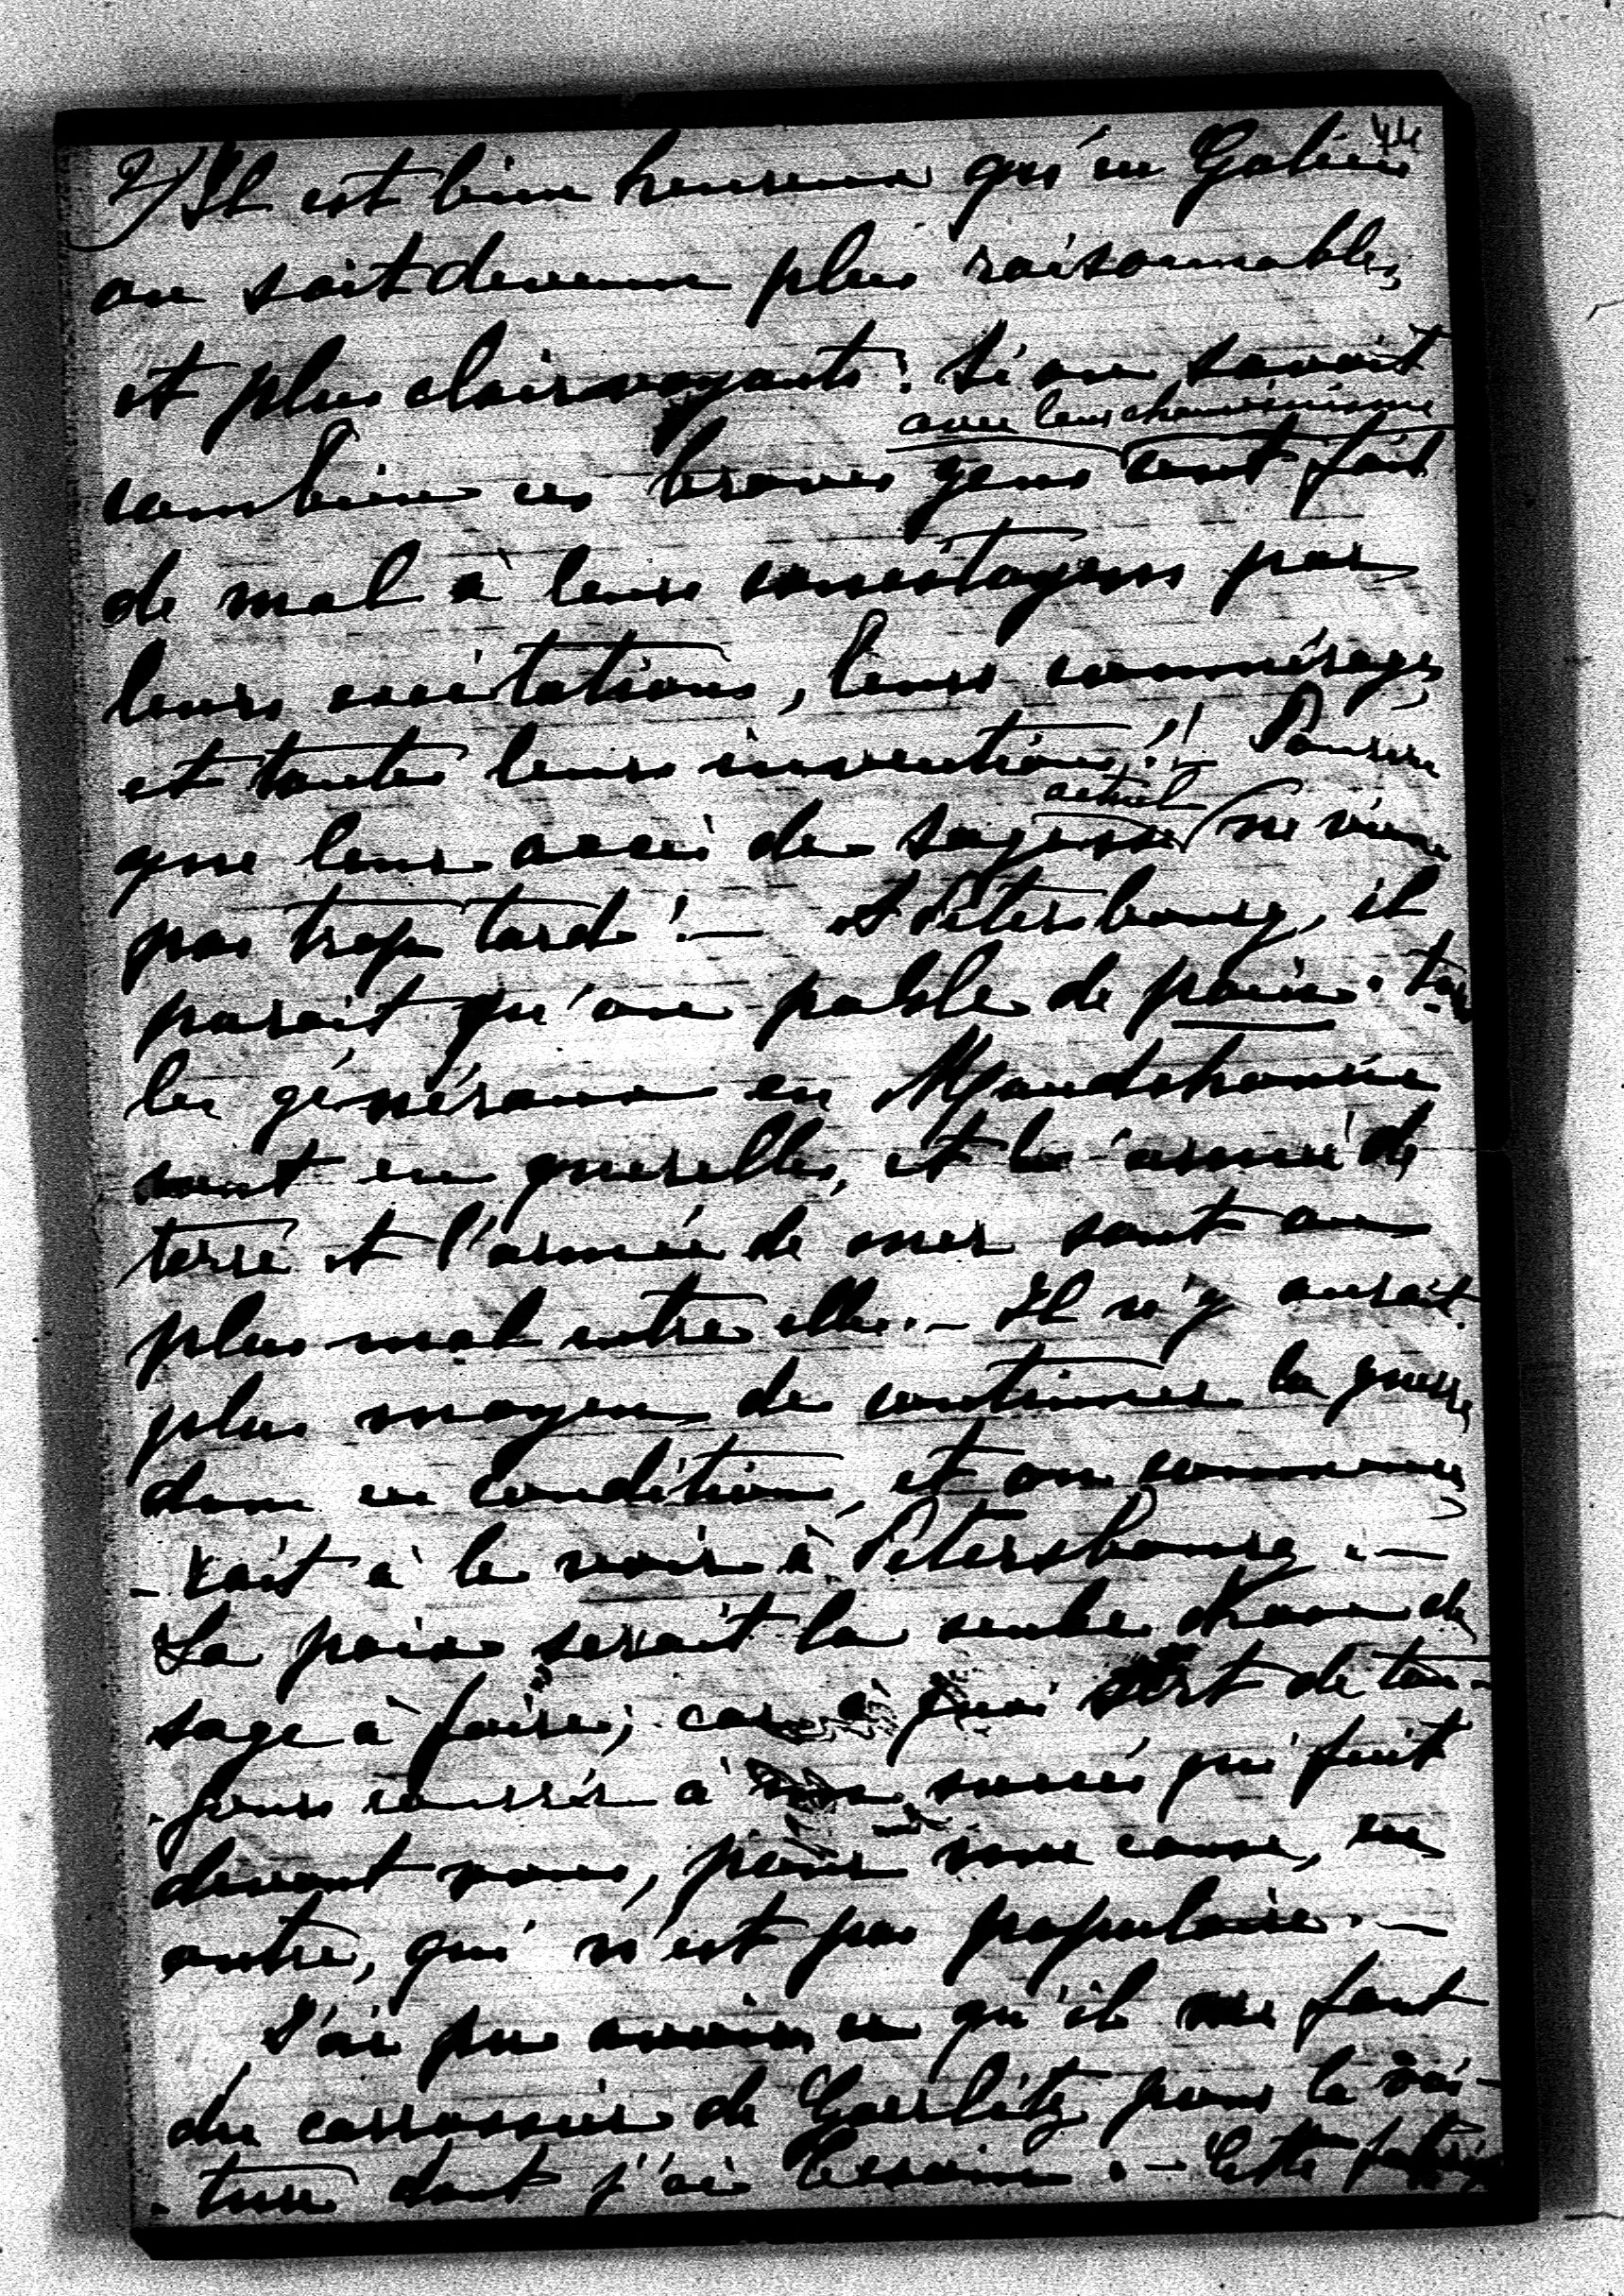 2) Il est bien heureux qu'en Galicie 44
on soit devenu plus raisonnables,
et plus clairvoyants! Si on savait
avec leur chauvinisme
combien ces braves gens ont fait
de mal à leurs concitoyens par
leurs excitations, leurs commérages,
et toutes leurs inventions!! Pourvu
actuel
que leur accès de sagesse ne vienne
pas trop tard! — A Pétersbourg, il
parait qu'on parle de paix. Tous
les généraux en Mandchourie
sont en querelles, et l'armée de
terre et l'armée de mer sont au
plus mal entre elles. — Il n'y aurait
plus moyen de continuer la guerre
dans ces conditions, et on commence-
-rait à le voir à Pétersbourg. —
La paix serait la seule chose de
sage à faire; car à quoi sert de tou-
-jours courrir à un succès qui fuit
devant nous, pour une cause, en
outre, qui n'est pas populaire. —
J'ai pu avoir ce qu'il me faut
du carrossier de Goerlitz pour la voi-
-ture dont j'ai besoin. — Cette